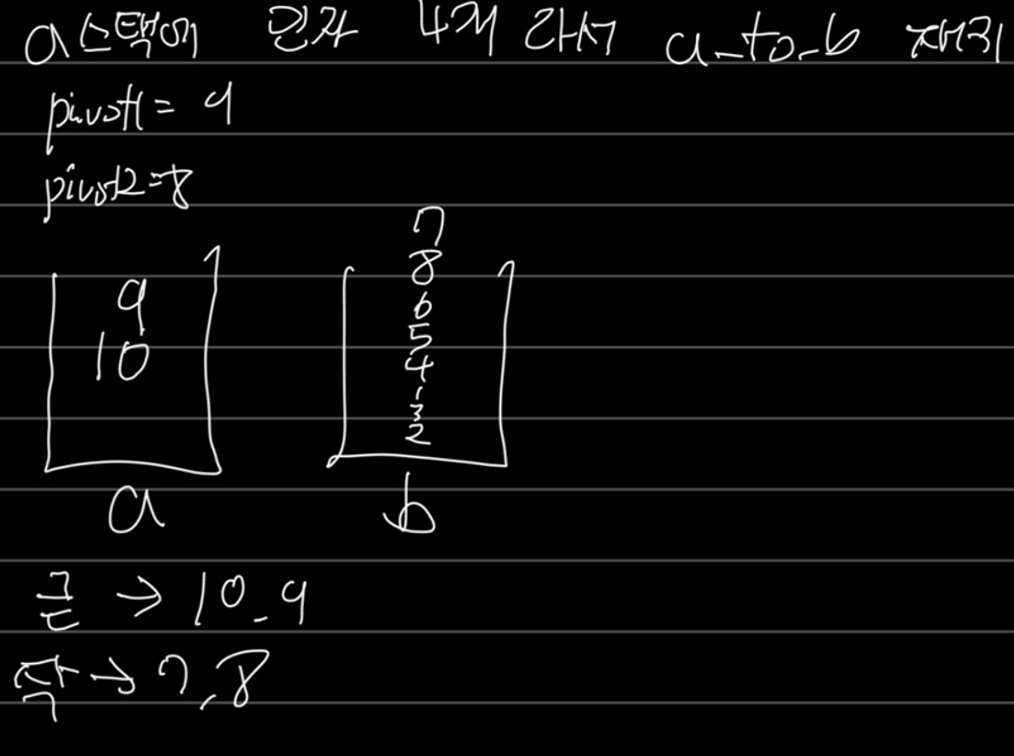 a스택에 인자 4개 라서 a_to_b 재귀
pivot1 = 9
pivot2=8
7
9 8
10 6
5
4
1
3
2
a b
큰 → 10, 9
작 → 7, 8